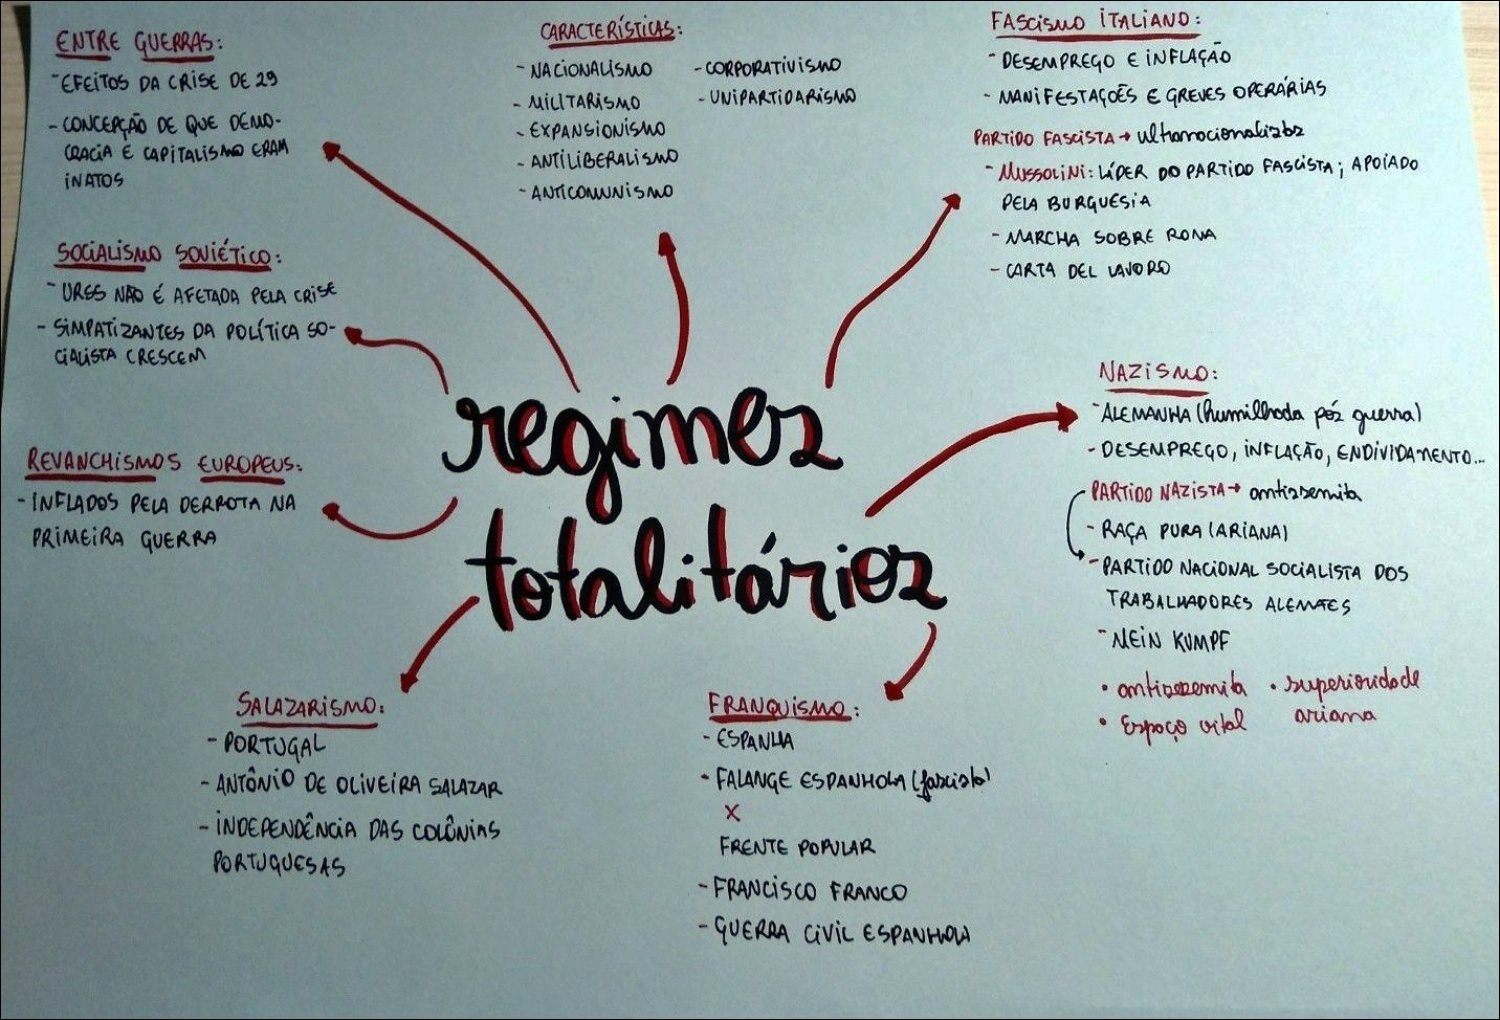 ENTRE GUERRAS:
- EFEITOS DA CRISE DE 29
- CONCEPÇÃO DE QUE DEMO-
CRACIA E CAPITALISMO ERAM
INATOS
SOCIALISMO SOVIÉTICO:
- URSS NÃO É AFETADA PELA CRISE
- SIMPATIZANTES DA POLÍTICA SO-
CIALISTA CRESCEM
REVANCHISMOS EUROPEUS:
- INFLADOS PELA DERROTA NA
PRIMEIRA GUERRA
CARACTERÍSTICAS:
- NACIONALISMO
- MILITARISMO
- EXPANSIONISMO
- ANTILIBERALISMO
- ANTICOMUNISMO
- CORPORATIVISMO
- UNIPARTIDARISMO
FASCISMO ITALIANO:
- DESEMPREGO E INFLAÇÃO
- MANIFESTAÇÕES E GREVES OPERÁRIAS
PARTIDO FASCISTA → ultranacionalista
- MUSSOLINI: LÍDER DO PARTIDO FASCISTA; APOIADO
PELA BURGUESIA
- MARCHA SOBRE ROMA
- CARTA DEL LAVORO
regimes
totalitários
NAZISMO:
- ALEMANHA (humilhada pós guerra)
- DESEMPREGO, INFLAÇÃO, ENDIVIDAMENTO...
PARTIDO NAZISTA → antissemita
- RAÇA PURA (ARIANA)
- PARTIDO NACIONAL SOCIALISTA DOS
TRABALHADORES ALEMÃES
- MEIN KUMPF
• antissemita • superioridade
ariana
• Espaço vital
SALAZARISMO:
- PORTUGAL
- ANTÔNIO DE OLIVEIRA SALAZAR
- INDEPENDÊNCIA DAS COLÔNIAS
PORTUGUESAS
FRANQUISMO:
- ESPANHA
- FALANGE ESPANHOLA (fascista)
X
FRENTE POPULAR
- FRANCISCO FRANCO
- GUERRA CIVIL ESPANHOLA